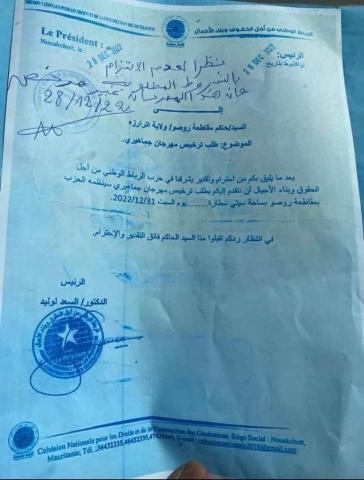 الرباط الوطني من أجل الحقوق وبناء الأجيال
Le Président :
Nouakchott, le
28 DEC 2022
الرئيس:
نواكشوط بتاريخ
28 DEC 2022
نظرا لعدم الالتزام
بالشروط المطلوبة
فإن هذا المهرجان غير مرخص
28/12/22
إلى
السيد/حاكم مقاطعة روصو/ ولاية اترارزه
الموضوع: طلب ترخيص مهرجان جماهيري.
بعد ما يليق بكم من احترام وتقدير يشرفنا في حزب الرباط الوطني من أجل
الحقوق وبناء الأجيال أن نتقدم إليكم بطلب ترخيص مهرجان جماهيري سينظمه الحزب
بمقاطعة روصو بساحة سيتي سطارة..........يوم السبت 2022/12/31.
في انتظار ردكم تقبلوا منا السيد الحاكم فائق التقدير والإحترام.
الرئيس
الدكتور/ السعد لوليد
Le Président
Cohésion Nationale pour les Droits et de la Construction des Générations. Siège Social : Nouakchott,
Mauritanie, Tél. :36432335,46932335,